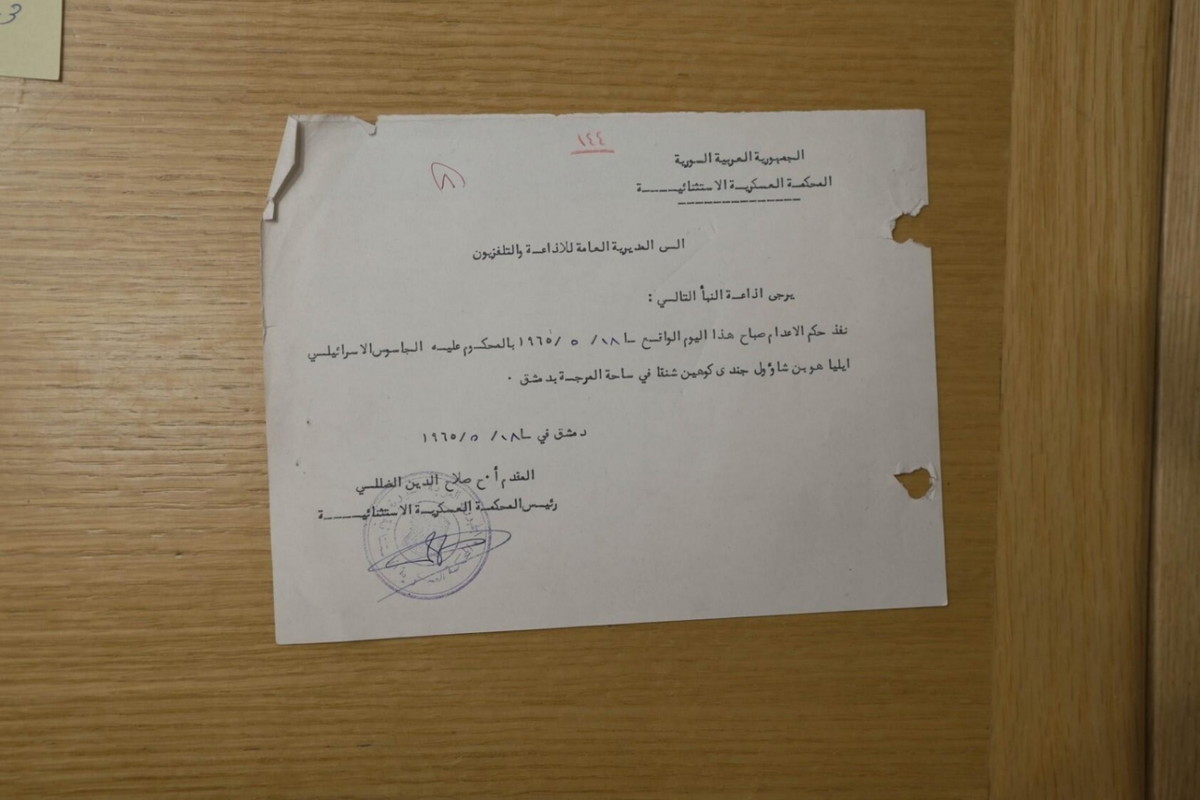 3
١٤٤
الجمهورية العربية السورية
المحكمة العسكرية الاستثنائيـــــة
الـى المديرية العامة للاذاعـة والتلفزيون
يرجى اذاعـة النبأ التالـي :
نفذ حكم الاعدام صباح هذا اليوم الواقـع ١٨/ ٥ /١٩٦٥ بالمحكـوم عليـه الجاسوس الاسرائيلـي
ايليا هو بن شاؤول جندى كوهين شنقا في ساحة المرجـة بدمشق .
دمشق في ١٨/ ٥ /١٩٦٥
المقدم أ.ح صلاح الدين الضللـي
رئيـس المحكمـة العسكريـة الاستثنائيـــــة